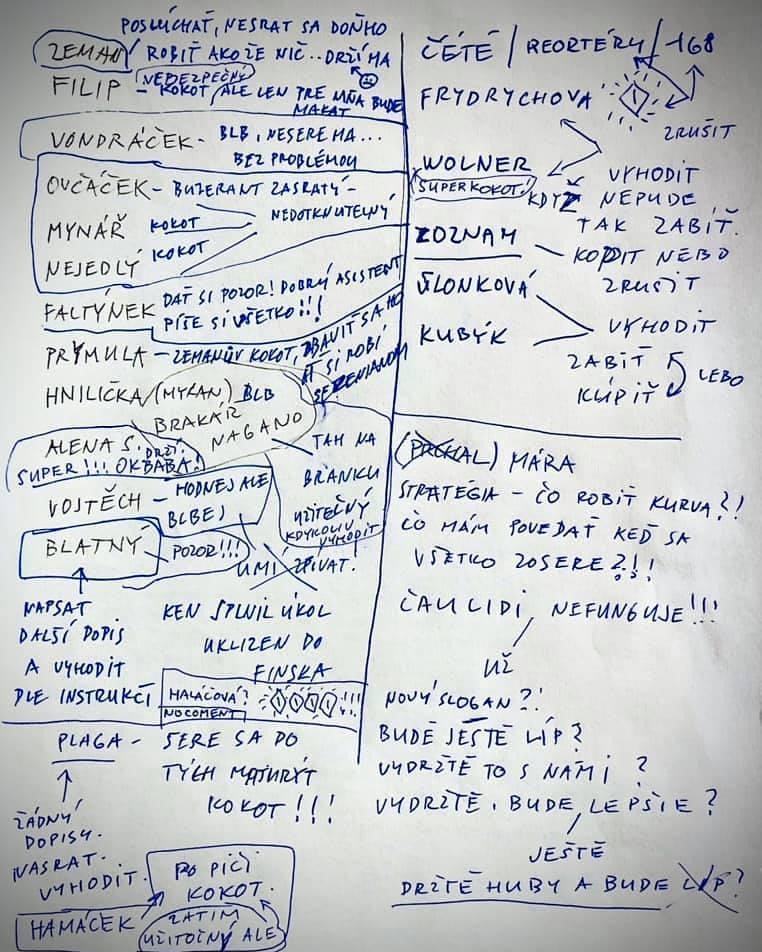 POSLÚCHAŤ, NESRAT SA DOŇHO
ZEMAN / ROBIŤ AKOŽE NIČ.. DRŽÍ MA
FILIP - NEBEZPEČNÝ
KOKOT, ALE LEN PRE MŇA BUDE
MAKAT
VONDRÁČEK - BLB, NESERE MA...
BEZ PROBLÉMOU
OVČÁČEK - BUZERANT ZASRATÝ -
MYNÁŘ KOKOT NEDOTKNUTELNÝ
NEJEDLÝ KOKOT
FALTÝNEK DAŤ SI POZOR! DOBRÝ ASISTENT
PÍŠE SI VŠETKO!!!
PRYMULA - ZEMANŮV KOKOT, ZBAVIT SA HO
AŤ SI ROBÍ
SE ZEMANOM
HNILIČKA (MYKAN) BLB
BRAKÁŘ
NAGANO
TAH NA
BRANKU
UŽITEČNÝ
KDYKOLIV
VYHODIT
ALENA S. DRŽÍ.
SUPER!!! OK BABA!
VOJTĚCH - HODNEJ ALE
BLBEJ
BLATNÝ - POZOR!!!
UMÍ ZPÍVAT!
NAPSAT
DALŠÍ DOPIS
A VYHODIT
DLE INSTRUKCÍ
KEN SPLNIL ÚKOL
UKLIZEN DO
FINSKA
HALÁČOVÁ?
NO COMENT
!!!
PLAGA - SERE SA DO
TÝCH MATURÝT
KOKOT!!!
ŽÁDNÝ
DOPISY.
NASRAT.
VYHODIT.
HAMÁČEK
PO PIČI
KOKOT.
ZATIM
UŽITOČNÝ ALE
ČÉTÉ / REORTÉRY / 168
FRYDRYCHOVÁ
ZRUŠIT
WOLNER
SUPERKOKOT!
VYHODIT
KDYŽ NEPUDE
TAK ZABÍŤ.
ZOZNAM - KOPIT NEBO
ZRUŠIT
ŠLONKOVÁ
KUBÝK
VYHODIT
ZABIŤ
LEBO
KLÍPIŤ
(PRCHAL) MÁRA
STRATÉGIA - ČO ROBIŤ KURVA?!
ČO MÁM POVEDAŤ KEĎ SA
VŠETKO ZOSERE?!!
ČAU LIDI, NEFUNGUJE!!!
UŽ
NOVÝ SLOGAN?!
BUDE JEŠTĚ LÍP?
VYDRŽTE TO S NÁMI?
VYDRŽTE, BUDE LEPŠIE?
JEŠTĚ
DRŽTE HUBY A BUDE LÍP?